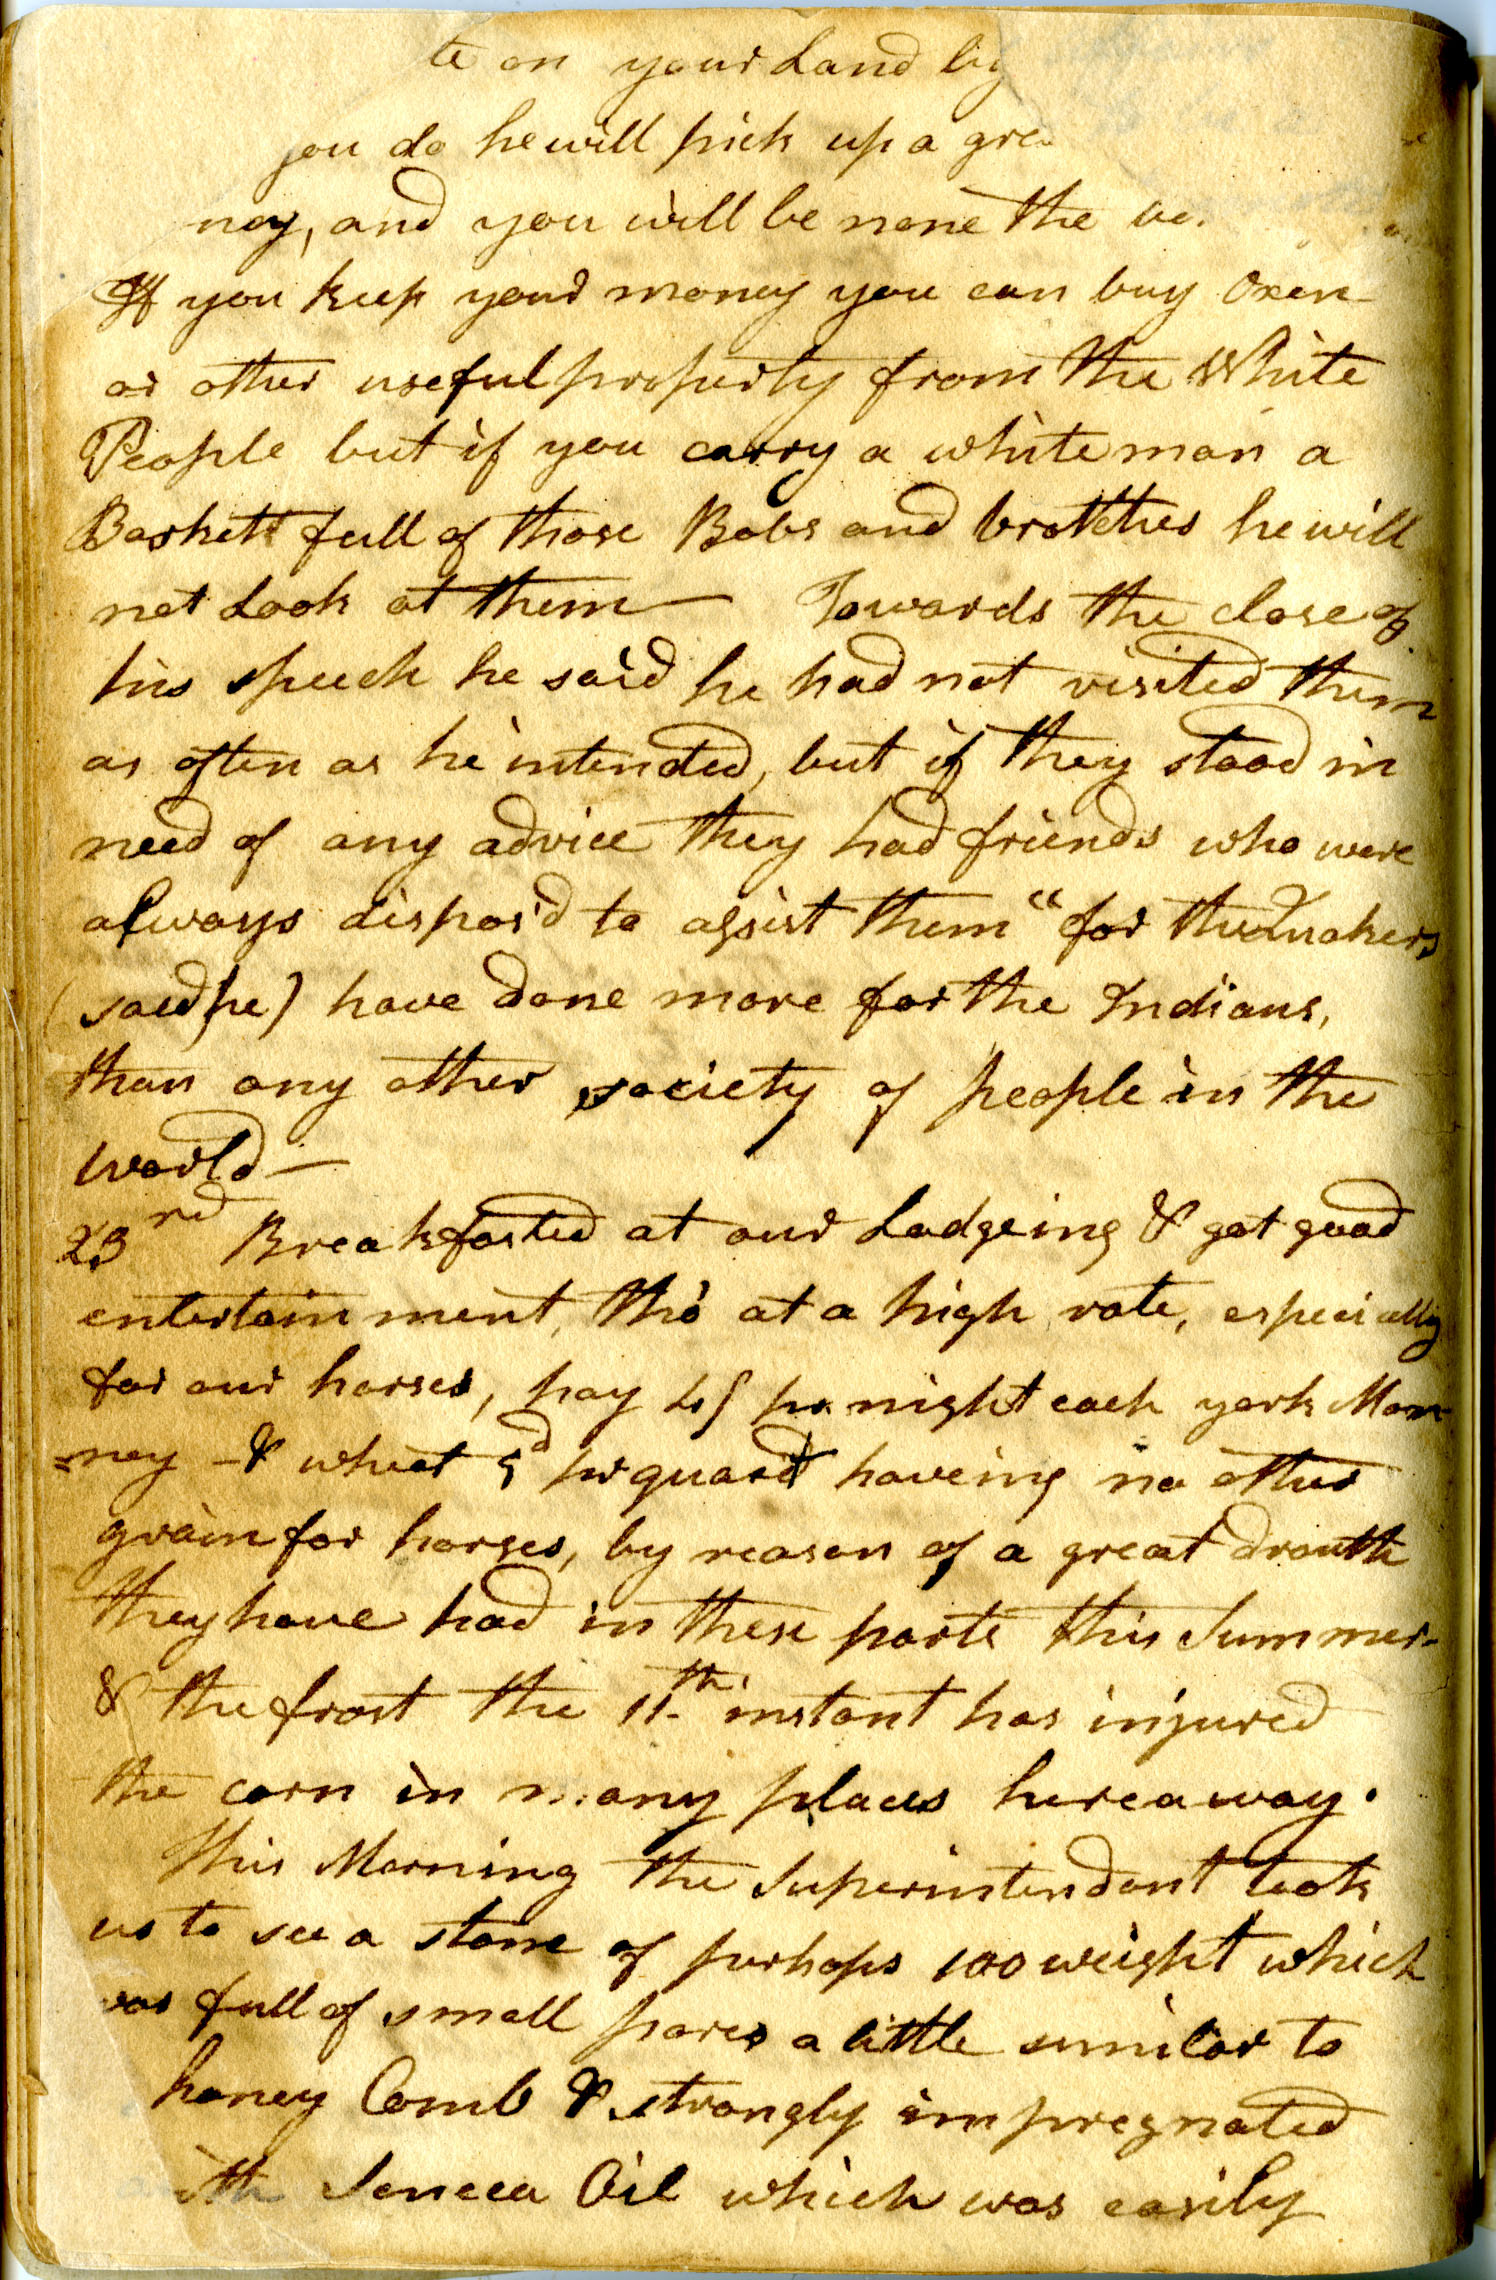 te on your Land by
you do he will pick up a gre
ney, and you will be none the be
If you keep your money you can buy Oxen
or other useful property from the White
People but if you carry a white man a
Baskett full of those Bobs and brotches he will
not Look at them — Towards the close of
his speech he said he had not visited them
as often as he intended, but if they stood in
need of any advice they had friends who were
always dispos'd to assist them "for the Quakers
(said he) have done more for the Indians,
than any other society of people in the
world —
23rd Breakfasted at our Lodgeing & got good
entertainment, tho' at a high rate, especially
for our horses, hay 4/ pr night each york Mon-
=ney - & wheat 5d pr quart haveing no other
grain for horses, by reason of a great drouth
they have had in these parts this Summer-
& the frost the 11th instant has injured
the corn in many places hereaway.
This Morning the Superintendant took
us to see a stone of perhaps 100 weight which
was full of small pores a little similar to
honey Comb & strongly impregnated
ith Seneca Oil which was easily